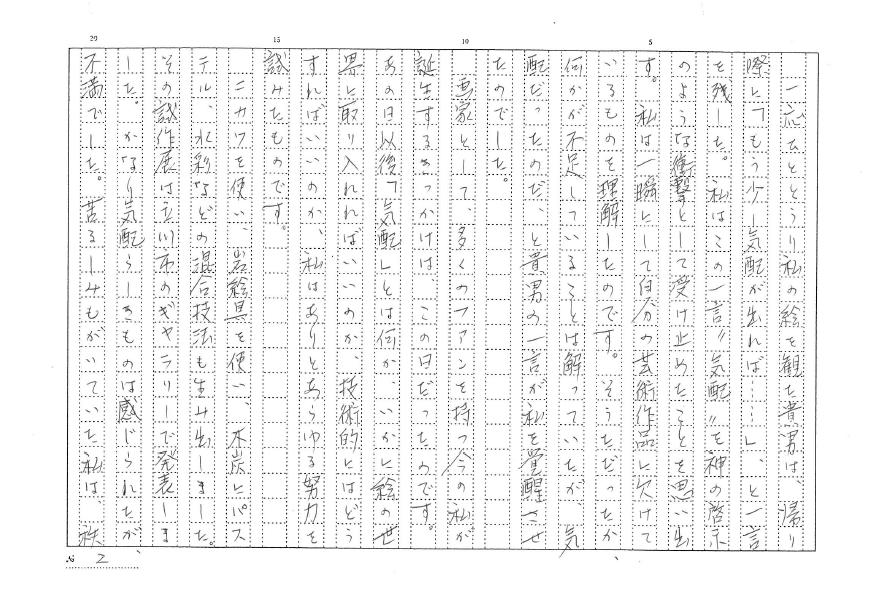 一応ひととうり私の絵を観た貴男は、帰り
際に「もう少し気配が出れば……」、と一言
を残した。私はこの一言〝気配〟を神の啓示
のような衝撃として受け止めたことを思い出
す。私は一瞬にして自分の芸術作品に欠けて
いるものを理解したのです。そうだったか、
何かが不足していることは解っていたが、気
配だったのだ、と貴男の一言が私を覚醒させ
たのでした。
画家として、多くのファンを持つ今の私が
誕生するきっかけは、この日だったのです。
あの日以後「気配」とは何か、いかに絵の世
界に取り入れればいいのか、技術的にはどう
すればいいのか、私はありとあらゆる努力を
試みたものです。
ニカワを使い、岩絵具を使い、木炭にパス
テル、水彩などの混合技法も生み出しました。
その試作展は立川市のギャラリーで発表しま
した。かなり気配らしきものは感じられたが、
不満でした。苦るしみもがいていた私は、秩
5
10
15
20
№ 2